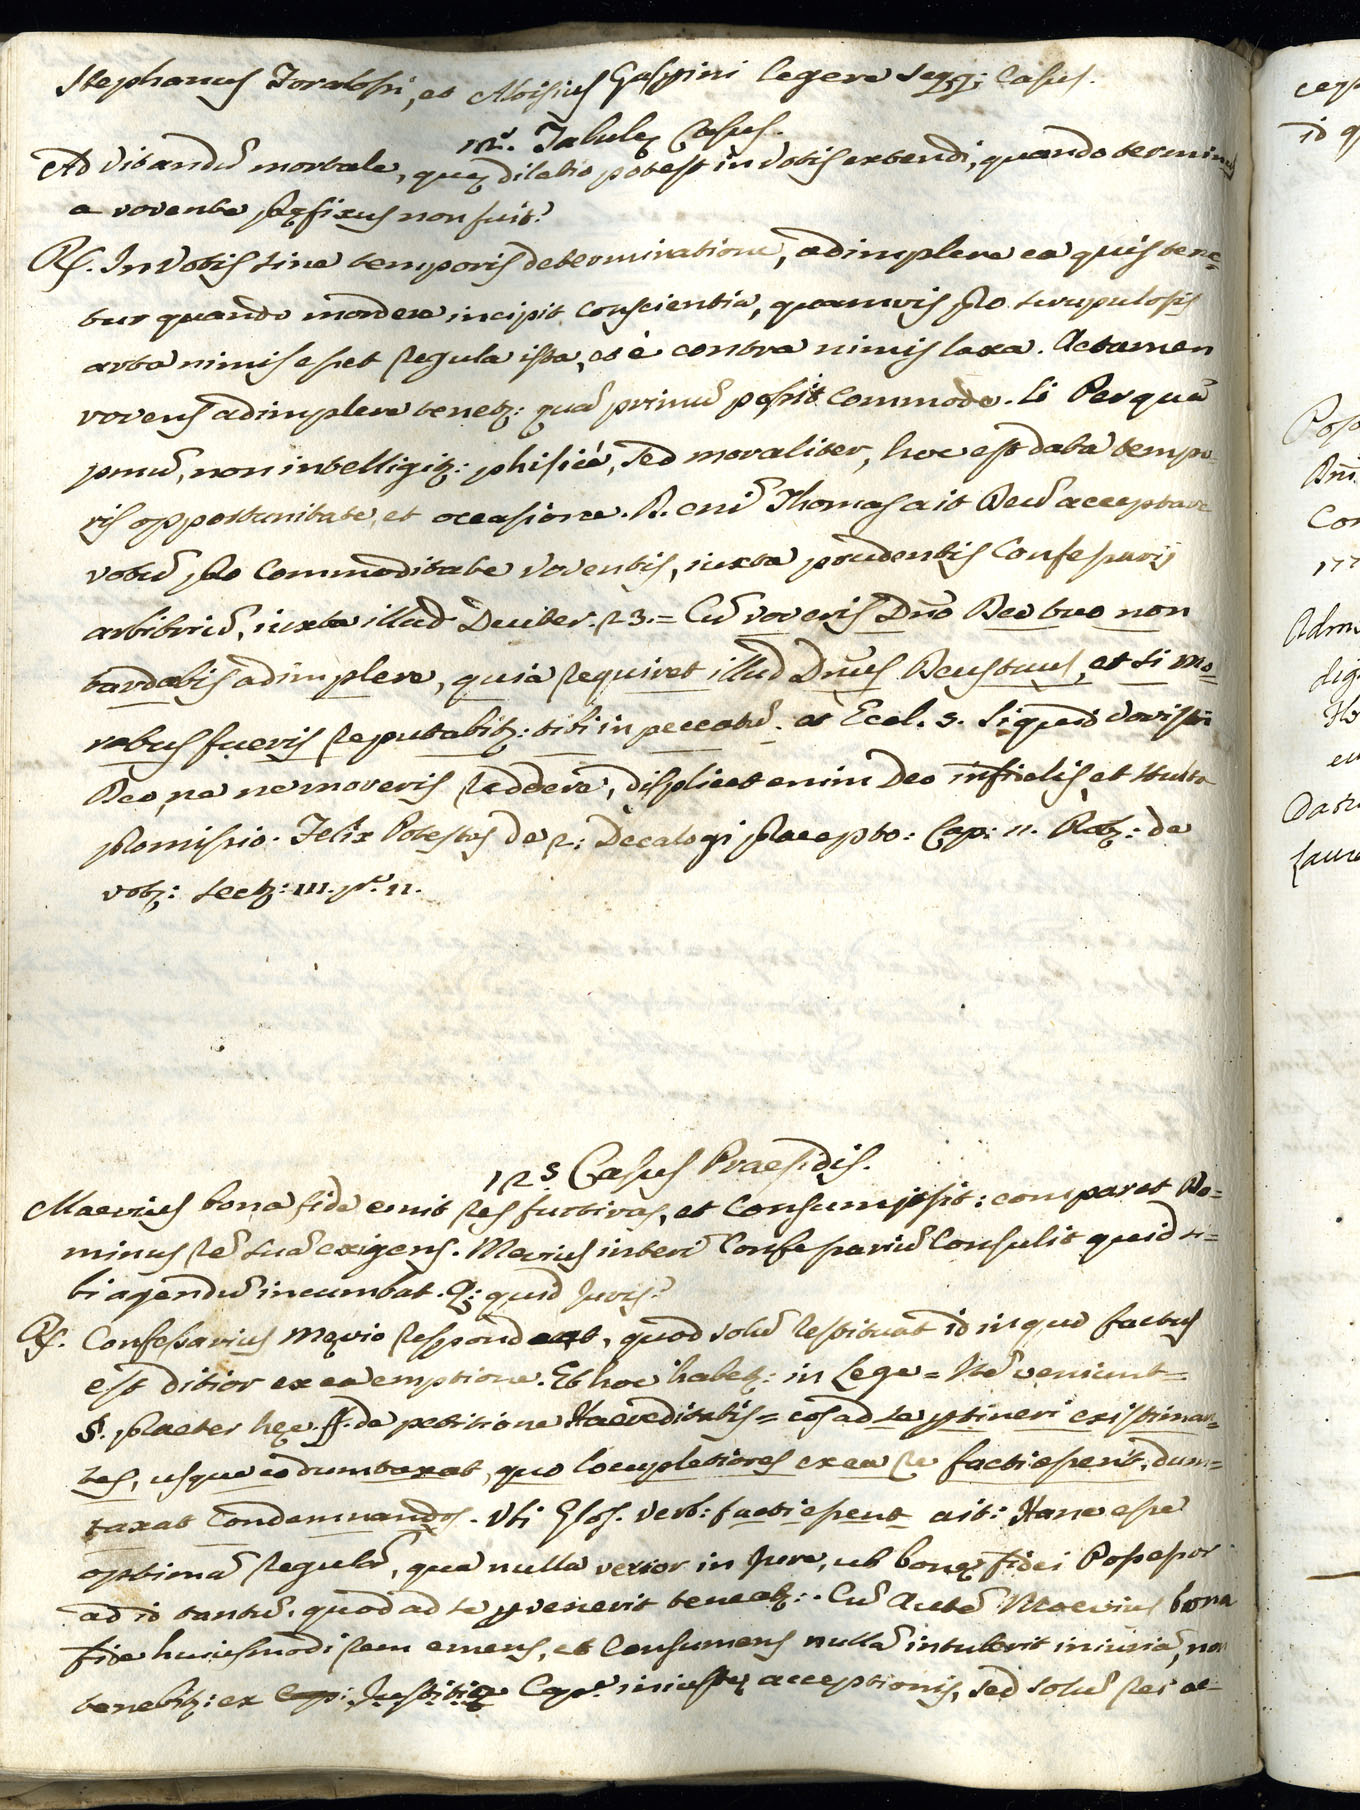 Stephanus Toralosi, et Aloisius Gaspini legere seqq: Casus.
12.s Tabulę Casus.
Ad Vitandũ mortale, quę dilatio potest in Votis extendi, quando terminus
a vovente pręfixus non fuit?
R. In Votis sine temporis determinatione, adimplere ea quis tene=
tur quando mordere incipit conscientia, quamvis pro scrupulosis
arta nimis esset regula ista, et è contra nimis laxa. Actamen
vovens adimplere tenetq: quã primũ possit commode. Li Per quã
pmũ, non intelligitq: phisicè, sed moraliter, hoc est data tempo-
ris opportunitate, et occasione. D. enĩ Thomas ait Deũ acceptare
votũ pro commoditate voventis, iuxta prudentis Confessarij
arbitriũ, iuxta illud Deuter. 23. = Cũ voveris Dño Deo tuo non
tardabis adimplere, quia requiret illud Dnũs Deus tuus, et si mo=
ratus fueris reputabitq: tibi in peccatũ. et Eccl. 5. Si quid vovisti
Deo, ne nemoveris reddere, displicet enim Deo infidelis, et stulta
promissio. Felix Potestas de 2: Decalogi praecepto: Cap: 11. Rtq: de
votq: sectq: III. pt. 11.
12.s Casus Praesidis.
Maevius bona fide emit res furtivas, et consumpsit: comparet Do=
minus rẽ suã exigens. Mevius interĩ Confessariũ Consulit quid si=
bi agendũ incumbat. Q: quid Juris?
R. Confessarius Mevio respondeat, quod solũ restituat id in quo factus
est ditior ex ea emptione. Et hoc habetq: in Lege = Itẽ veniunt =
§. praeter hęc. ff: de petitione Haereditatis = eos ad se ptineri existiman=
tes, usque eo dumtaxat, quo locupletiores ex ea re facti essent, dum=
taxat condemnandos. Ubi Glos. verb: facti essent ait: Hanc esse
optimã regulã, qua nulla verior in Jure, ut bonę fidei Possessor
ad id tantũ, quod ad se pvenerit teneatq:. Cũ Autẽ Maevius bona
fide huiusmodi rem emens, et Consumens nullã intulerit iniuriã, non
tenebitq: ex Cap: Justitię Cape. iniustę acceptionis, sed solũ rei ac=